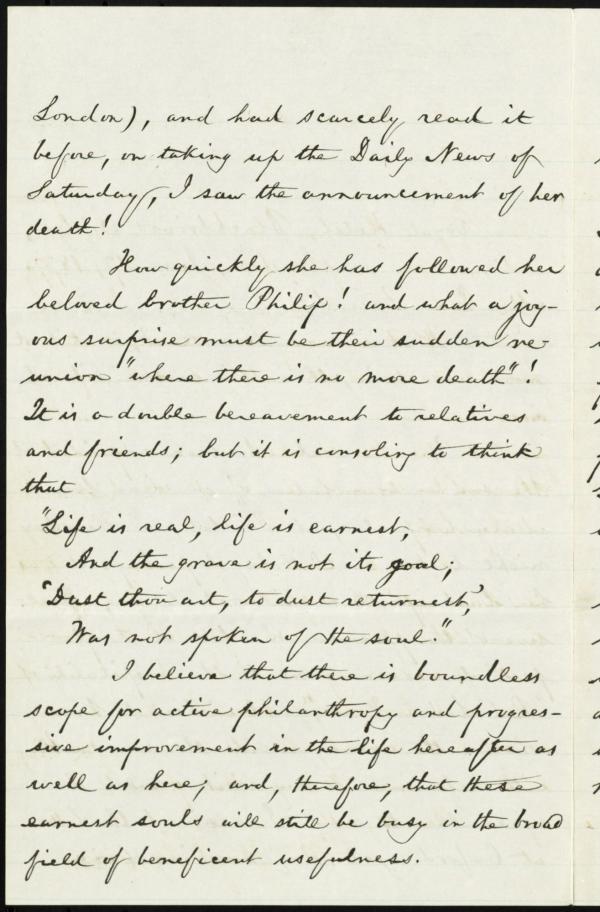 London), and had scarcely read it
before, on taking up the Daily News of
Saturday, I saw the announcement of her
death!
How quickly she has followed her
beloved brother Philip! and what a joy-
ous surprise must be their sudden re-
union "where there is no more death"!
It is a double bereavement to relatives
and friends; but it is consoling to think
that
"Life is real, life is earnest,
And the grave is not its goal;
'Dust thou art, to dust returnest,'
Was not spoken of the soul."
I believe that there is boundless
scope for active philanthropy and progres-
sive improvement in the life hereafter as
well as here; and, therefore, that these
earnest souls will still be busy in the broad
field of beneficent usefulness.